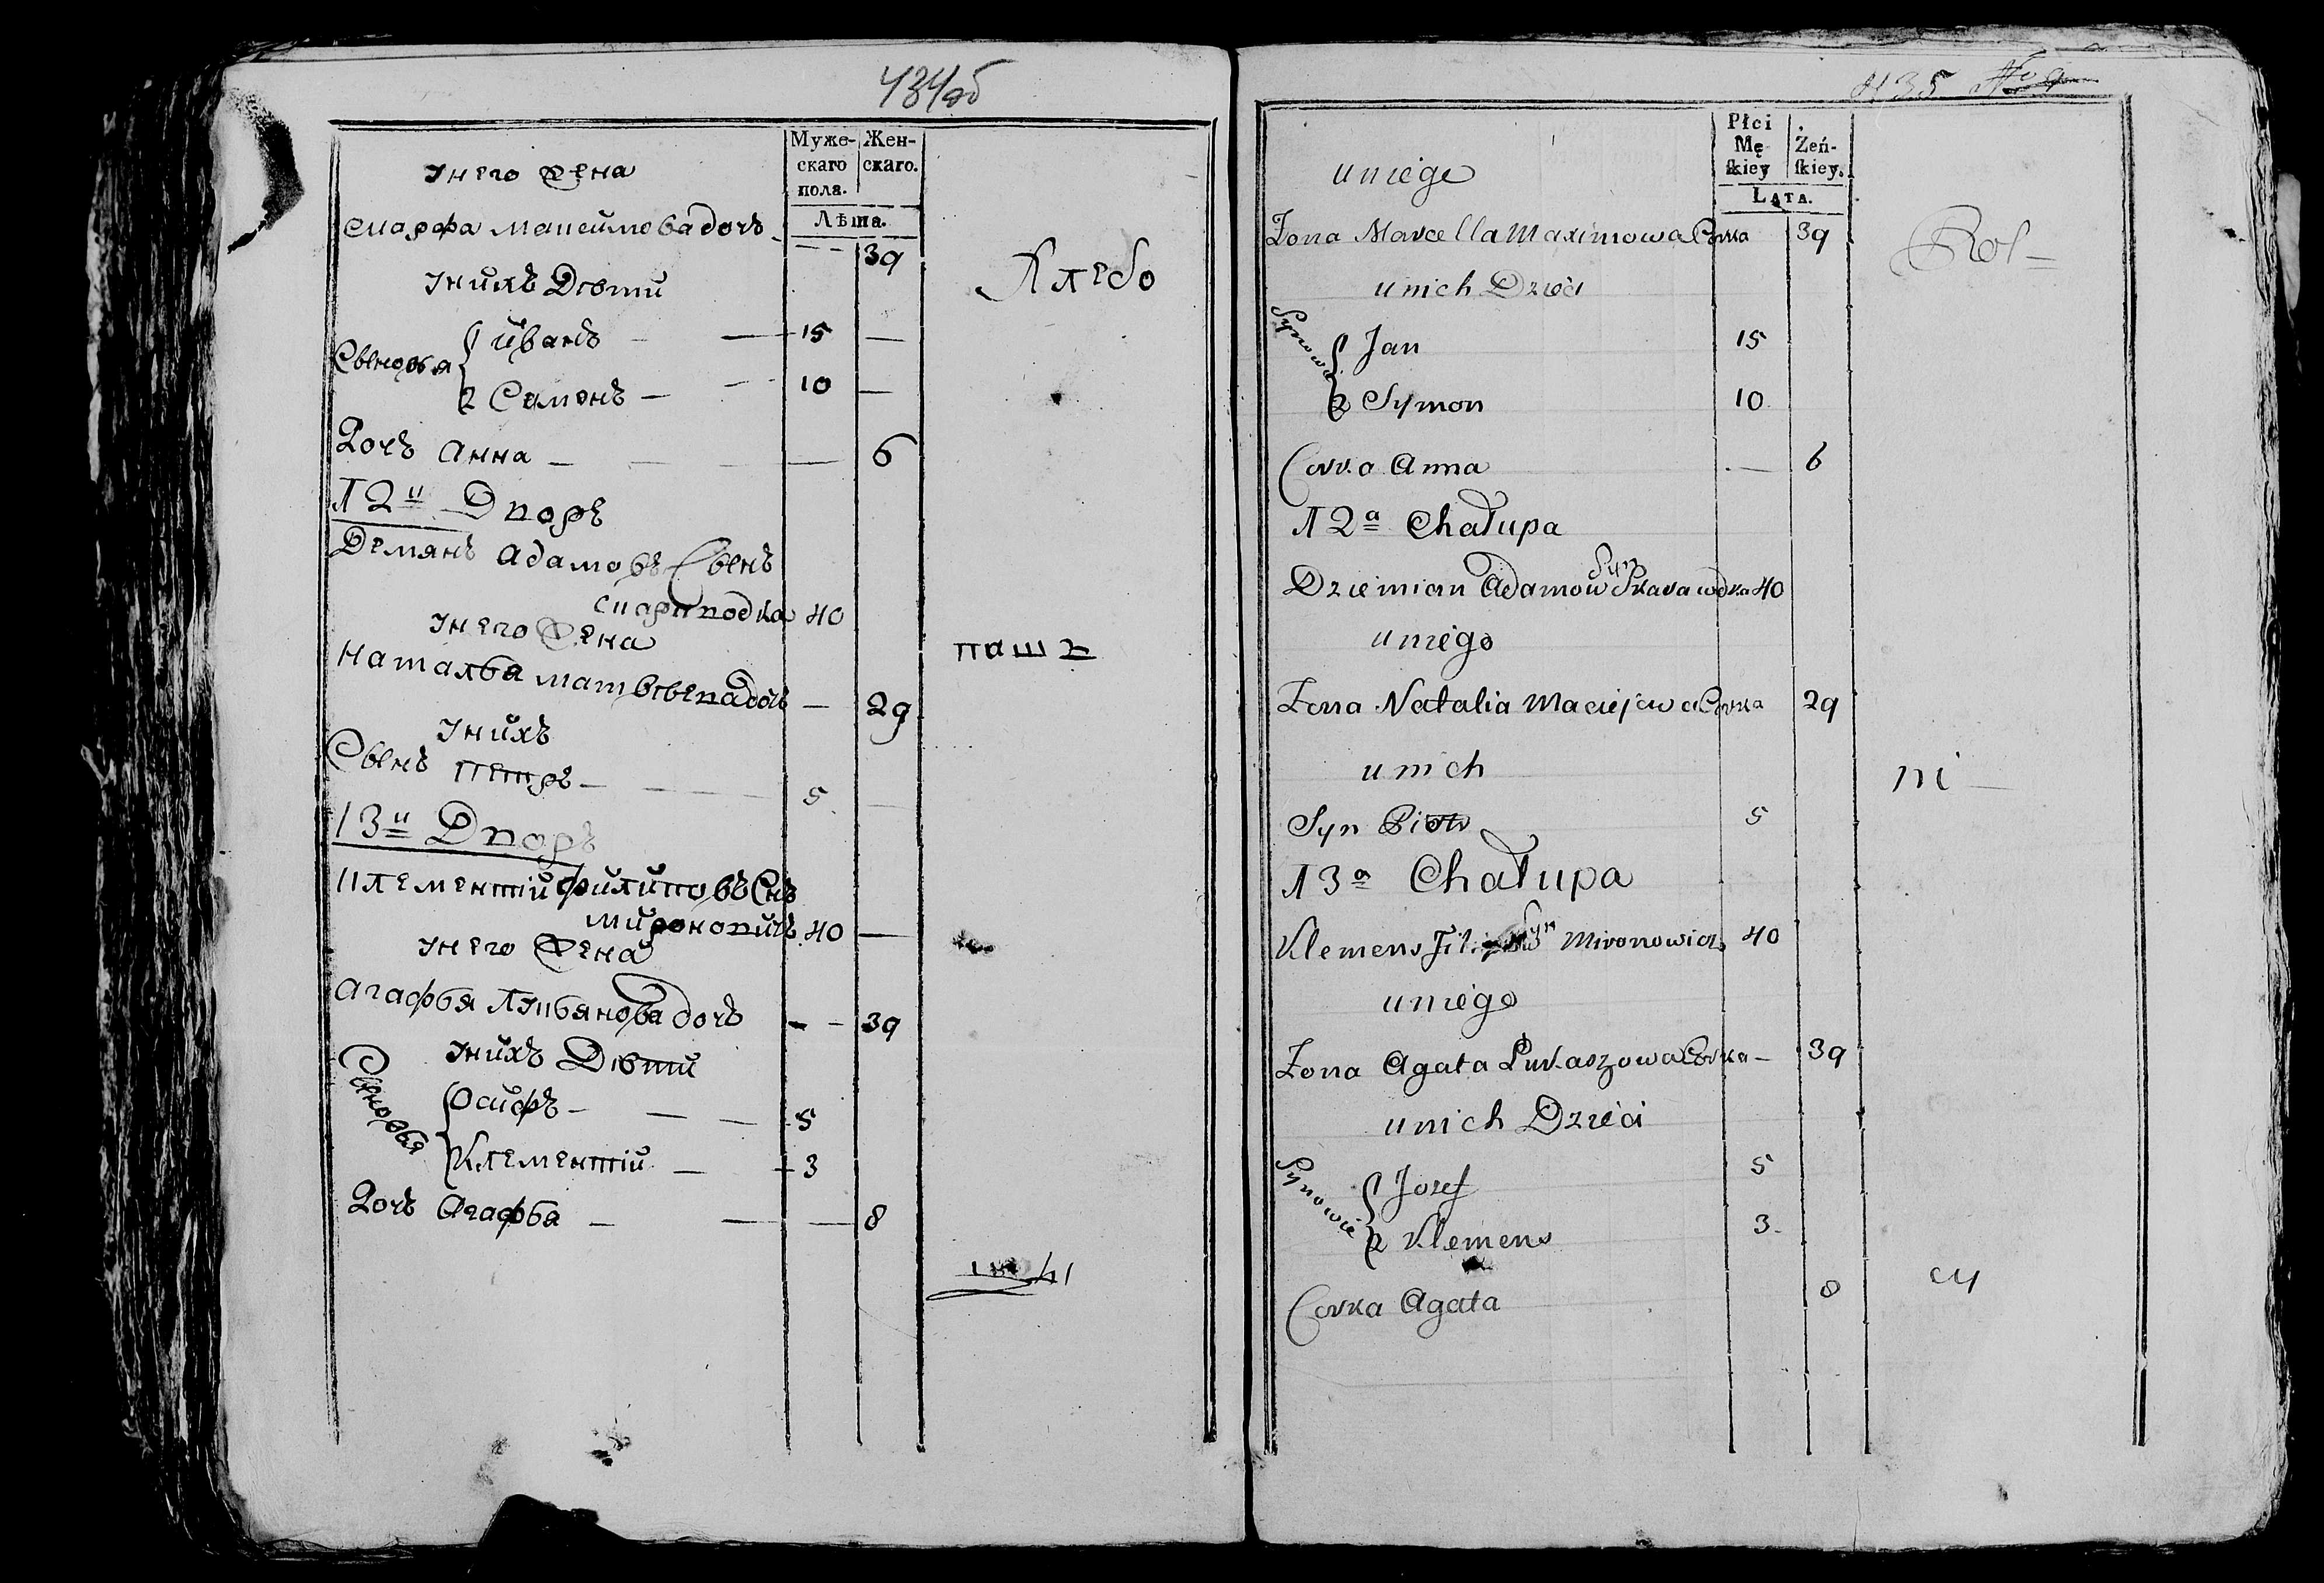 434об
Муже-
скаго
пола.
Жен-
скаго.
Лѣта.
Унего Жена
Марфа Макеимова дочь — 39
Унихъ Дѣти
Хлебо
Сыновья { 1 иванъ — 15 —
2 Семенъ — 10 —
Дочь Анна — — 6
12й Дворъ
Демянъ Адамовъ Сынъ
Скараводка 40
Унего Жена
паш
Наталья Матвѣева дочь — 29
Унихъ
Сынъ Петръ — 5 —
13й Дворъ
Клементій Филиповъ Снъ
Мироновичъ 40 —
Унего Жена
Агафья Лукьянова дочь — 39
Унихъ Дѣти
Сыновья { Осифъ — 5
Клементій — 3
Дочь Агафья — — 8
435 No 9
Płci
Mę
skiey
Żeń-
skiey.
Lata.
u niego
Żona Marcella Maximowa Corka 39
Rol—
u nich Dzieci
Synowie { 1 Jan 15
2 Symon 10
Corka Anna — 6
12a Chałupa
Dziemian Adamow Syn Skarawodka 40
u niego
Żona Natalia Maciejowa Corka 29
u nich
ni—
Syn Piotr 5
13a Chałupa
Klemens Syn Mironowicz 40
u niego
Żona Agata Łukaszowa Corka — 39
u nich Dzieci
Synowie { 1 Jozef 5
2 Klemens 3
Corka Agata 8